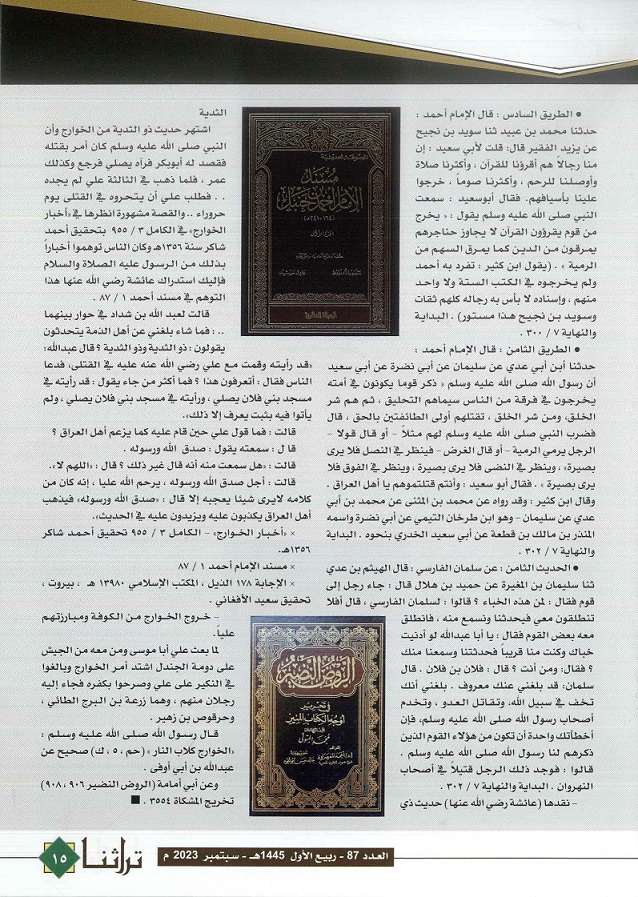 • الطريق السادس : قال الإمام أحمد :
حدثنا محمد بن عبيد ثنا سويد بن نجيح
عن يزيد الفقير قال: قلت لأبي سعيد : إن
منا رجالاً هم أقرؤنا للقرآن ، وأكثرنا صلاة
وأوصلنا للرحم ، وأكثرنا صوماً ، خرجوا
علينا بأسيافهم. فقال أبوسعيد : سمعت
النبي صلى الله عليه وسلم يقول : «يخرج
من قوم يقرؤون القرآن لا يجاوز حناجرهم
يمرقون من الدين كما يمرق السهم من
الرمية » . (يقول ابن كثير : تفرد به أحمد
ولم يخرجوه في الكتب الستة ولا واحد
منهم ، وإسناده لا بأس به رجاله كلهم ثقات
وسويد بن نجيح هذا مستور) . البداية
والنهاية ٧ / ٣٠٠ .
• الطريق الثامن : قال الإمام أحمد :
حدثنا ابن أبي عدي عن سليمان عن أبي نضرة عن أبي سعيد
أن رسول الله صلى الله عليه وسلم « ذكر قوما يكونون في أمته
يخرجون في فرقة من الناس سيماهم التحليق ، ثم هم شر
الخلق، ومن شر الخلق ، تقتلهم أولى الطائفتين بالحق ، قال
فضرب النبي صلى الله عليه وسلم لهم مثلاً - أو قال قولا -
الرجل يرمي الرمية - أو قال الغرض - فينظر في النصل فلا يرى
بصيرة» ، وينظر في النضى فلا يرى بصيرة ، وينظر في الفوق فلا
يرى بصيرة » . فقال أبو سعيد : وأنتم قتلتموهم يا أهل العراق .
وقال ابن كثير : وقد رواه عن محمد بن المثنى عن محمد بن أبي
عدي عن سليمان - وهو ابن طرخان التيمي عن أبي نضرة واسمه
المنذر بن مالك بن قطعة عن أبي سعيد الخدري بنحوه . البداية
والنهاية ٧ / ٣٠٢ .
• الحديث الثامن : عن سلمان الفارسي : قال الهيثم بن عدي
ثنا سليمان بن المغيرة عن حميد بن هلال قال : جاء رجل إلى
قوم فقال : لمن هذه الخباء ؟ قالوا : لسلمان الفارسي ، قال أفلا
تنطلقون معي فيحدثنا ونسمع منه ، فانطلق
معه بعض القوم فقال : يا أبا عبدالله لو أدنيت
خباك وكنت منا قريباً فحدثتنا وسمعنا منك
؟ فقال: ومن أنت ؟ قال : فلان بن فلان . قال
سلمان: قد بلغني عنك معروف . بلغني أنك
تخف في سبيل الله، وتقاتل العدو ، وتخدم
أصحاب رسول الله صلى الله عليه وسلم، فإن
أخطأتك واحدة أن تكون من هؤلاء القوم الذين
ذكرهم لنا رسول الله صلى الله عليه وسلم .
قالوا : فوجد ذلك الرجل قتيلاً في أصحاب
النهروان . البداية والنهاية ٧ / ٣٠٢ .
- نقدها (عائشة رضي الله عنها) حديث ذي
الثدية
اشتهر حديث ذو الثدية من الخوارج وأن
النبي صلى الله عليه وسلم كان أمر بقتله
فقصد له أبوبكر فرآه يصلي فرجع وكذلك
عمر ، فلما ذهب في الثالثة علي لم يجده
. . فطلب علي أن يتحروه في القتلى يوم
حروراء ..والقصة مشهورة انظرها في «أخبار
الخوارج» في الكامل ٣ / ٩٥٥ بتحقيق أحمد
شاكر سنة ١٣٥٦هـ وكان الناس توهموا أخباراً
بذلك من الرسول عليه الصلاة والسلام
فإليك استدراك عائشة رضي الله عنها هذا
التوهم في مسند أحمد ١ / ٨٧ .
قالت لعبد الله بن شداد في حوار بينهما
.. : فما شاء بلغني عن أهل الذمة يتحدثون
يقولون : ذو الثدية وذو الثدية ؟ قال عبدالله:
«قد رأيته وقمت مع علي رضي الله عنه عليه في القتلى، فدعا
الناس فقال : أتعرفون هذا ؟ فما أكثر من جاء يقول : قد رأيته في
مسجد بني فلان يصلي ، ورأيته في مسجد بني فلان يصلي ، ولم
يأتوا فيه بثبت يعرف إلا ذلك».
قالت : فما قول علي حين قام عليه كما يزعم أهل العراق ؟
قا ل : سمعته يقول : صدق الله ورسوله .
قالت : «هل سمعت منه أنه قال غير ذلك ؟ قال : «اللهم لا».
قالت : أجل صدق الله ورسوله ، يرحم الله عليا ، إنه كان من
كلامه لايرى شيئا يعجبه إلا قال : «صدق الله ورسوله» فيذهب
أهل العراق يكذبون عليه ويزيدون عليه في الحديث».
× «أخبار الخوارج» - الكامل ٣ / ٩٥٥ تحقيق أحمد شاكر
١٣٥٦هـ.
× مسند الإمام أحمد ١ / ٨٧
× الإجابة ١٧٨ الذيل ، المكتب الإسلامي ١٣٩٨٠ هـ ، بيروت ،
تحقيق سعيد الأفغاني .
- خروج الخوارج من الكوفة ومبارزتهم
علياً.
لما بعث علي أبا موسى ومن معه من الجيش
على دومة الجندل اشتد أمر الخوارج وبالغوا
في النكير على علي وصرحوا بكفره فجاء إليه
رجلان منهم ، وهما زرعة بن البرج الطائي ،
وحرقوص بن زهير .
قال رسول الله صلى الله عليه وسلم :
«الخوارج كلاب النار» (حم ، ٥ ، ك) صحيح عن
عبدالله بن أبي أوفى .
وعن أبي أمامة (الروض النضير ٩٠٦ ، ٩٠٨)
تخريج المشكاة ٣٥٥٤ . ■
مسند
الإمام أحمد بن حنبل
(١٦٤-٢٤١هـ)
الروض النضير
في تحرير
أوجه الكتاب المنير
العدد 87 - ربيع الأول 1445هـ - سبتمبر 2023 م
تراثنا
١٥